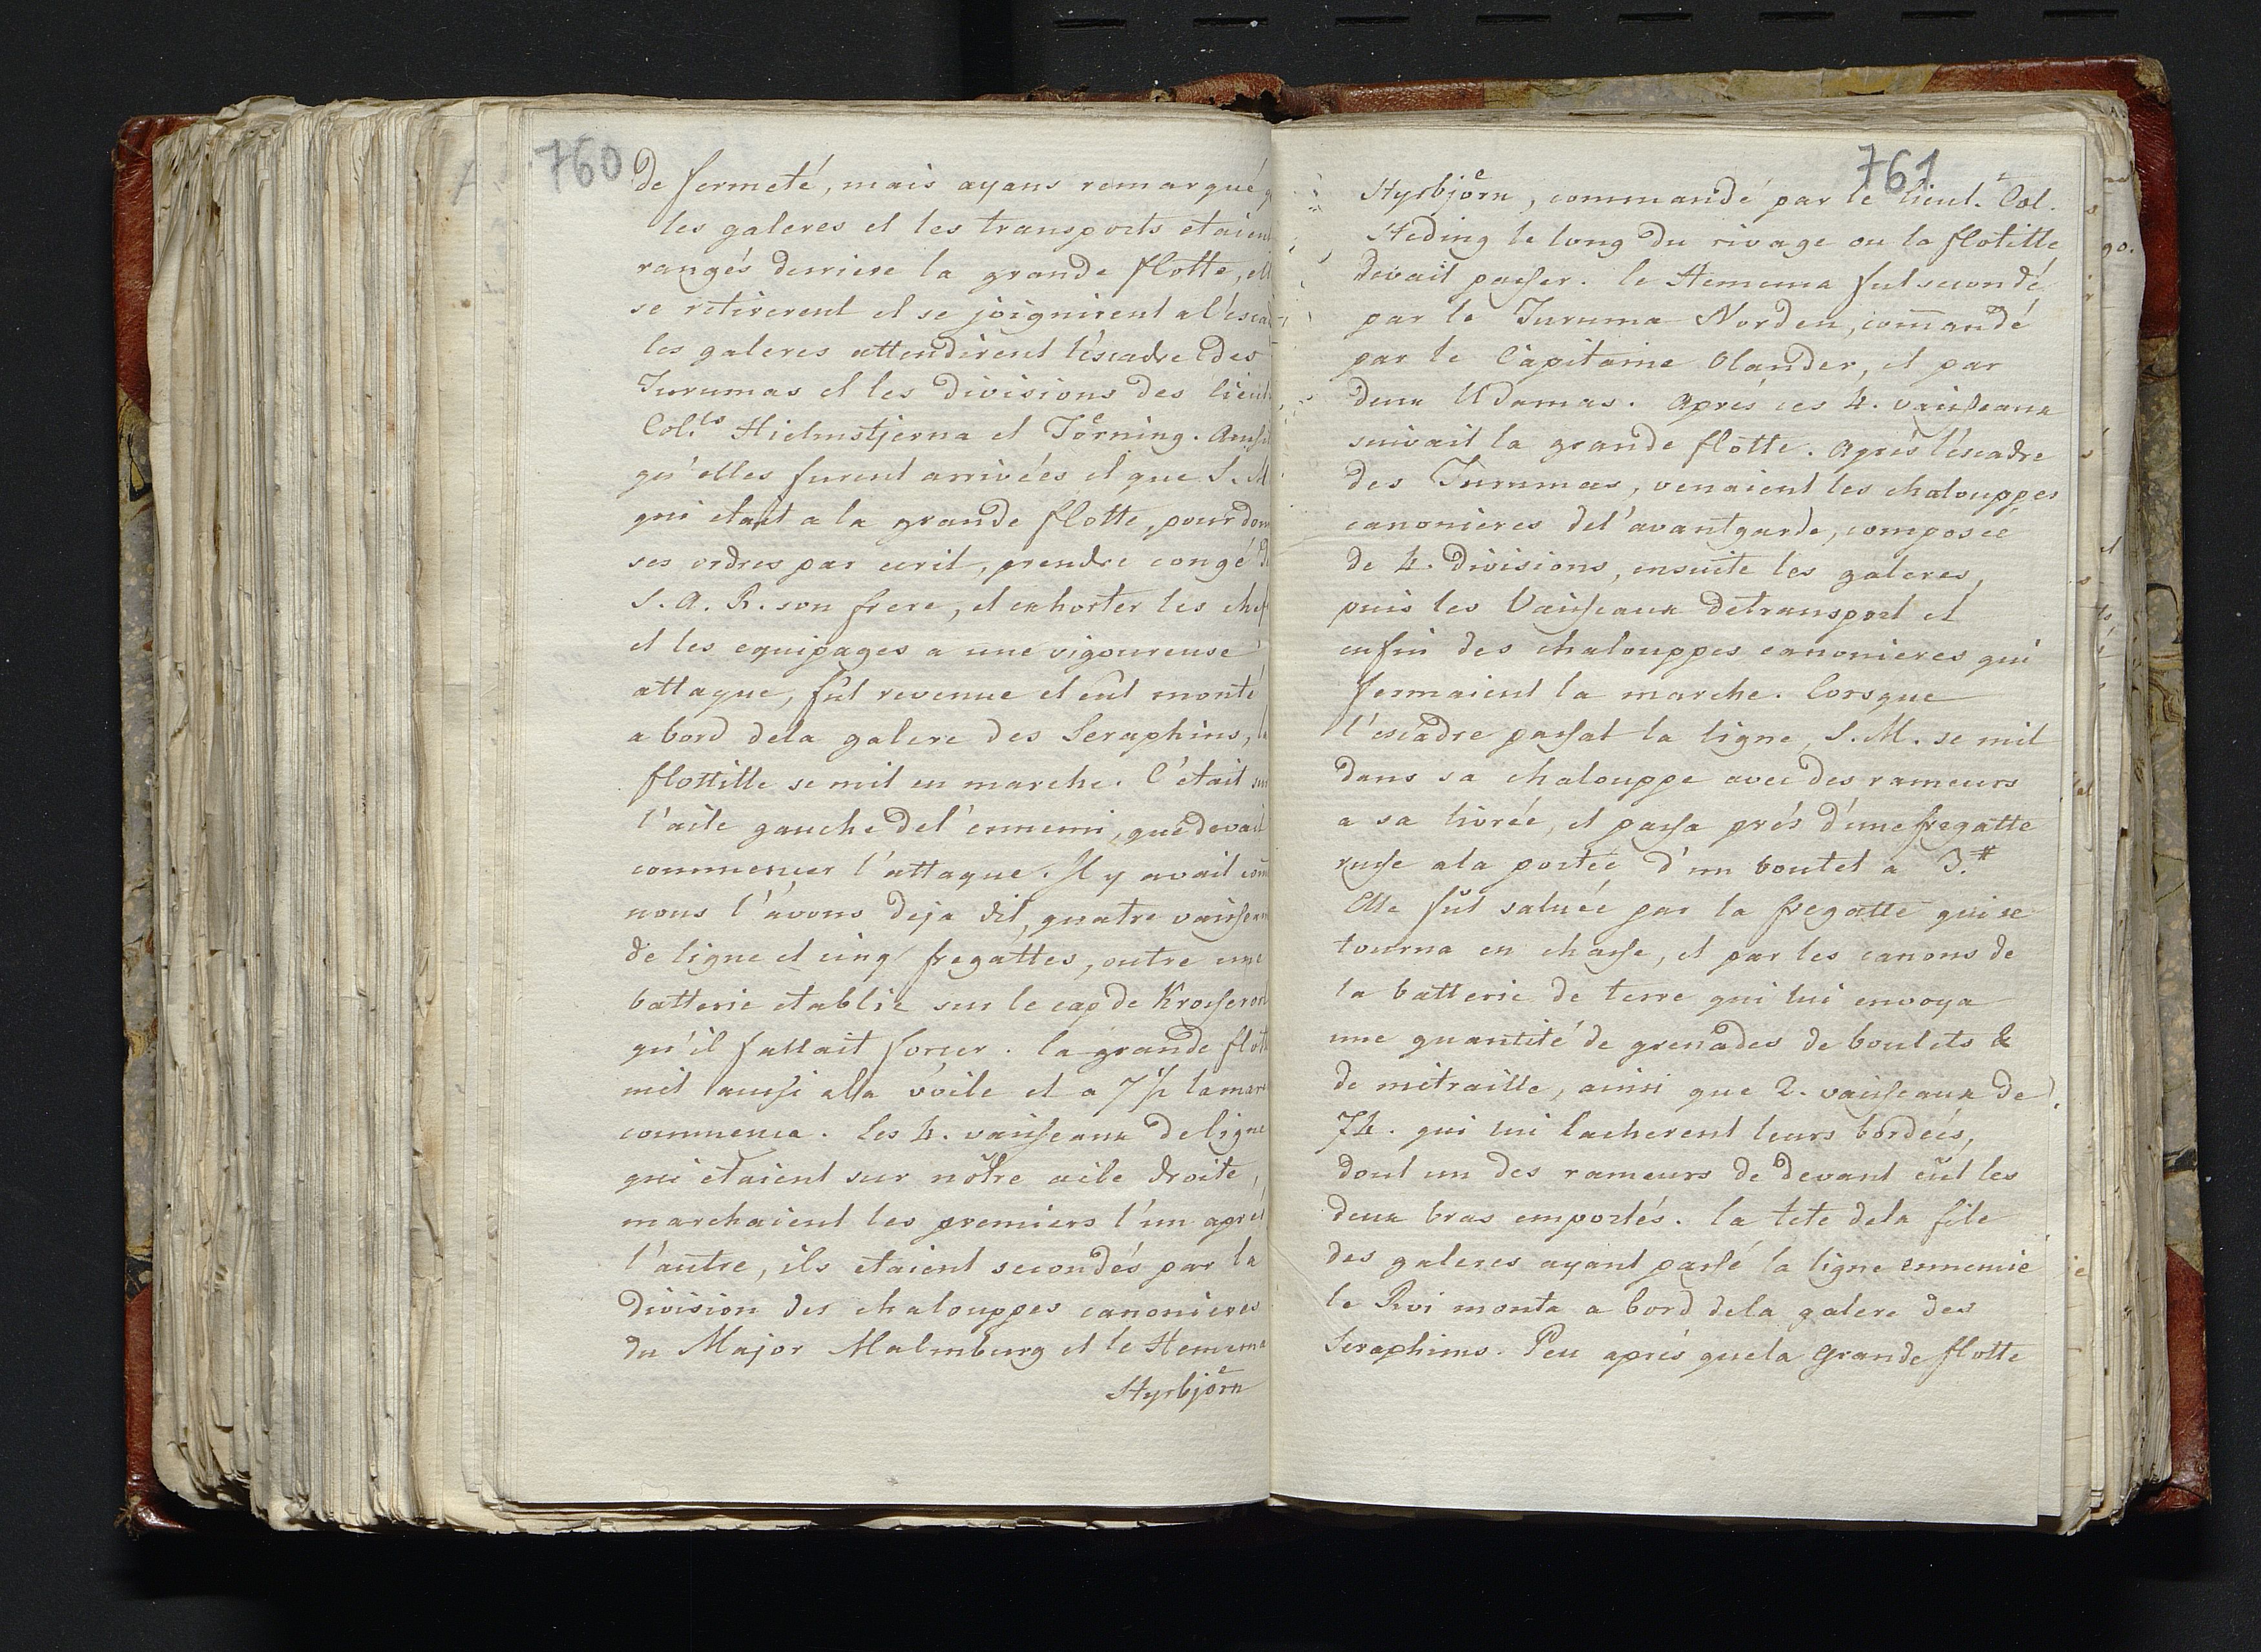 760
de fermeté, mais ayans remarqué
les galeres et les transports etaient
rangés derriere la grande flotte,
se retirerent et se joignirent a l'esca
les galeres attendirent l'éscadre des
Turumas et les divisions des lieut.
Col.ls Hielmstjerna et Törning. Aussit
qu'elles furent arrivées et que S. M
qui etait a la grande flotte, pour don
ses ordres par ecrit, prendre congé de
S. A. R. son frere, et exhorter les chef
et les equipages a une vigoureuse
attaque, fût revenue et eut monté
a bord dela galere des Seraphins, la
flottille se mit en marche. C'était sur
l'aile gauche del'ennemi, que devait
commencer l'attaque. Il y avait com̄
nous l'avons deja dit, quatre vaisseau
de ligne et cinq fregattes, outre une
batterie etablie sur le cap de Krosseror
qu'il fallait forcer. la grande flott
mit aussi alla voile et a 7½ lamar
commenca. Les 4. vaisseaux deligne
qui etaient sur nôtre aile droite,
marchaient les premiers l'un aprés
l'autre, ils etaient secondés par la
division des chalouppes canonieres
du Major Malmburg et le Hemema
Styrbjörn
761
Styrbjörn, commandé par le lieut. Col.
Steding le long du rivage ou la flotille
devait passer. le Hemema fut secondé
par le Turuma Norden, com̄andé
par le Capitaine Olander, et par
deux Udamas. Après ces 4. vaisseaux
suivait la grande flotte. Après l'éscadre
des Turumas, venaient les chalouppes
canonieres del'avantgarde, composée
de 4. divisions, ensuite les galeres,
puis les Vaisseaux detransport et
enfin des chalouppes canonieres qui
fermaient la marche. Lorsque
l'escadre passat la ligne, S. M. se mit
dans sa chalouppe avec des rameurs
a sa livrée, et passa prés d'une fregatte
russe ala portée d'un boulet a 3.#
Elle fût saluée par la fregatte qui se
tourna en chasse, et par les canons de
la batterie de terre qui lui envoya
une quantité de grenades de boulets &
de mitraille, ainsi que 2. vaisseaux de
74. qui lui lacherent leurs bordées,
dont un des rameurs de devant eût les
deux bras emportés. la tete dela file
des galeres ayant passé la ligne ennemie
le Roi monta a bord dela galere des
Seraphims. Peu aprés quela grande flotte